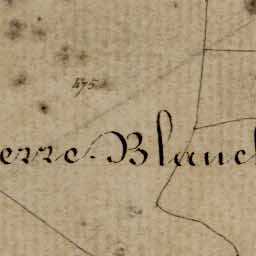 475.
erre-Blanc